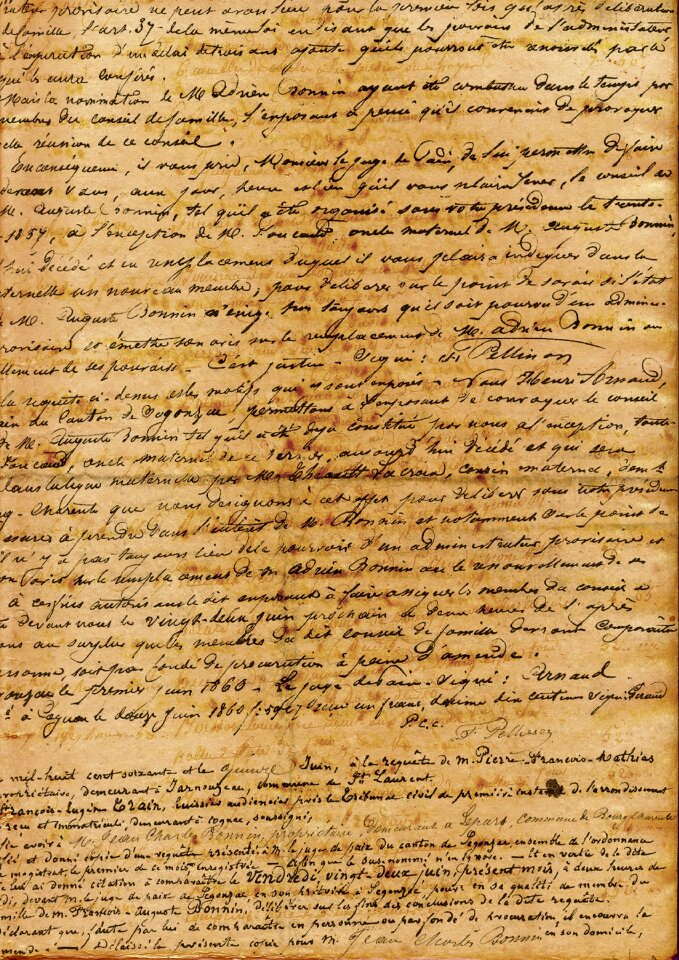 provisoire ne peut avoir lieu pour la première fois qu'après délibération
de famille, l'art. 37 de la même loi en disant que les pouvoirs de l'administrateur
à l'expiration d'un délai de trois ans ajoute qu'ils pourront être renouvelés par le
qui les aura conférés.
Mais la nomination de M. Adrien Bonnin ayant été combattue dans le temps par
membres du conseil de famille, l'exposant a pensé qu'il convenait de provoquer
la réunion de ce conseil.
En conséquence, il vous prie, Monsieur le Juge de Paix, de lui permettre de faire
devant vous, aux jour, heure et lieu qu'il vous plaira fixer, le conseil de
M. Auguste Bonnin, tel qu'il a été organisé sous votre présidence le
1857, à l'exception de M. Foucaud, oncle maternel de M. Auguste Bonnin,
décédé et en remplacement duquel il vous plaira indiquer dans la
maternelle un nouveau membre; pour délibérer sur le point de savoir si l'état
de M. Auguste Bonnin exige toujours qu'il soit pourvu d'un
provisoire et émettre son avis sur le remplacement de M. Adrien Bonnin ou
de ses pouvoirs. C'est justice. Signé: Pellisson
la requête ci-dessus et les motifs qui y sont exposés - Nous Henri Arnaud,
du Canton de Segonzac, permettons à l'exposant de convoquer le conseil
de M. Auguste Bonnin tel qu'il a été déjà constitué par nous à l'exception,
Foucaud, oncle maternel de ce dernier, aujourd'hui décédé et qui sera
dans la ligne maternelle par M. Lacroix, cousin maternel,
Charente que nous désignons à cet effet pour délibérer sous notre présidence
mesures à prendre dans l'intérêt de M. Bonnin et notamment sur le point de
s'il n'y a pas toujours lieu de le pourvoir d'un administrateur provisoire et
son avis sur le remplacement de M. Adrien Bonnin ou le renouvellement de
à conférés autorisons le dit exposant à faire assigner les membres du conseil à
devant nous le vingt-deux juin prochain à deux heures de l'après
au surplus que les membres du dit conseil de famille devront comparaître
personne, soit par fondé de procuration à peine d'amende.
Segonzac le premier juin 1860 - Le juge de Paix - Signé: Arnaud
à Cognac le douze juin 1860 reçu un franc, décime dix centimes Signé:
P.c.c.
Pellisson
mil-huit cent soixante et le Juin, à la requête de M. Pierre-François-Mathias
propriétaire, demeurant à Jarnouzeau, commune de St Laurent.
François-Eugène huissier audiencier près le Tribunal civil de première instance de l'arrondissement
reçu et immatriculé demeurant à Cognac, soussigné,
avoir à M. Jean Charles Bonnin, propriétaire, demeurant à commune de Bourg Charente
et donné copie d'une requête présentée à M. le juge de paix du canton de Segonzac ensemble de l'ordonnance
magistrat, le premier de ce mois enregistrée - Afin que le sus-nommé n'en ignore. - Et en vertu de la dite
lui ai donné citation à comparaître le vendredi, vingt-deux juin, présent mois, à deux heures de
devant M. le juge de paix de Segonzac, en son prétoire à Segonzac, pour en sa qualité de membre du
famille de M. François-Auguste Bonnin, délibérer sur les fins des conclusions de la dite requête.
Déclarant que, faute par lui de comparaître en personne ou par fondé de procuration, il encourra la
- Délaissé la présente copie pour M. Jean Charles Bonnin en son domicile,